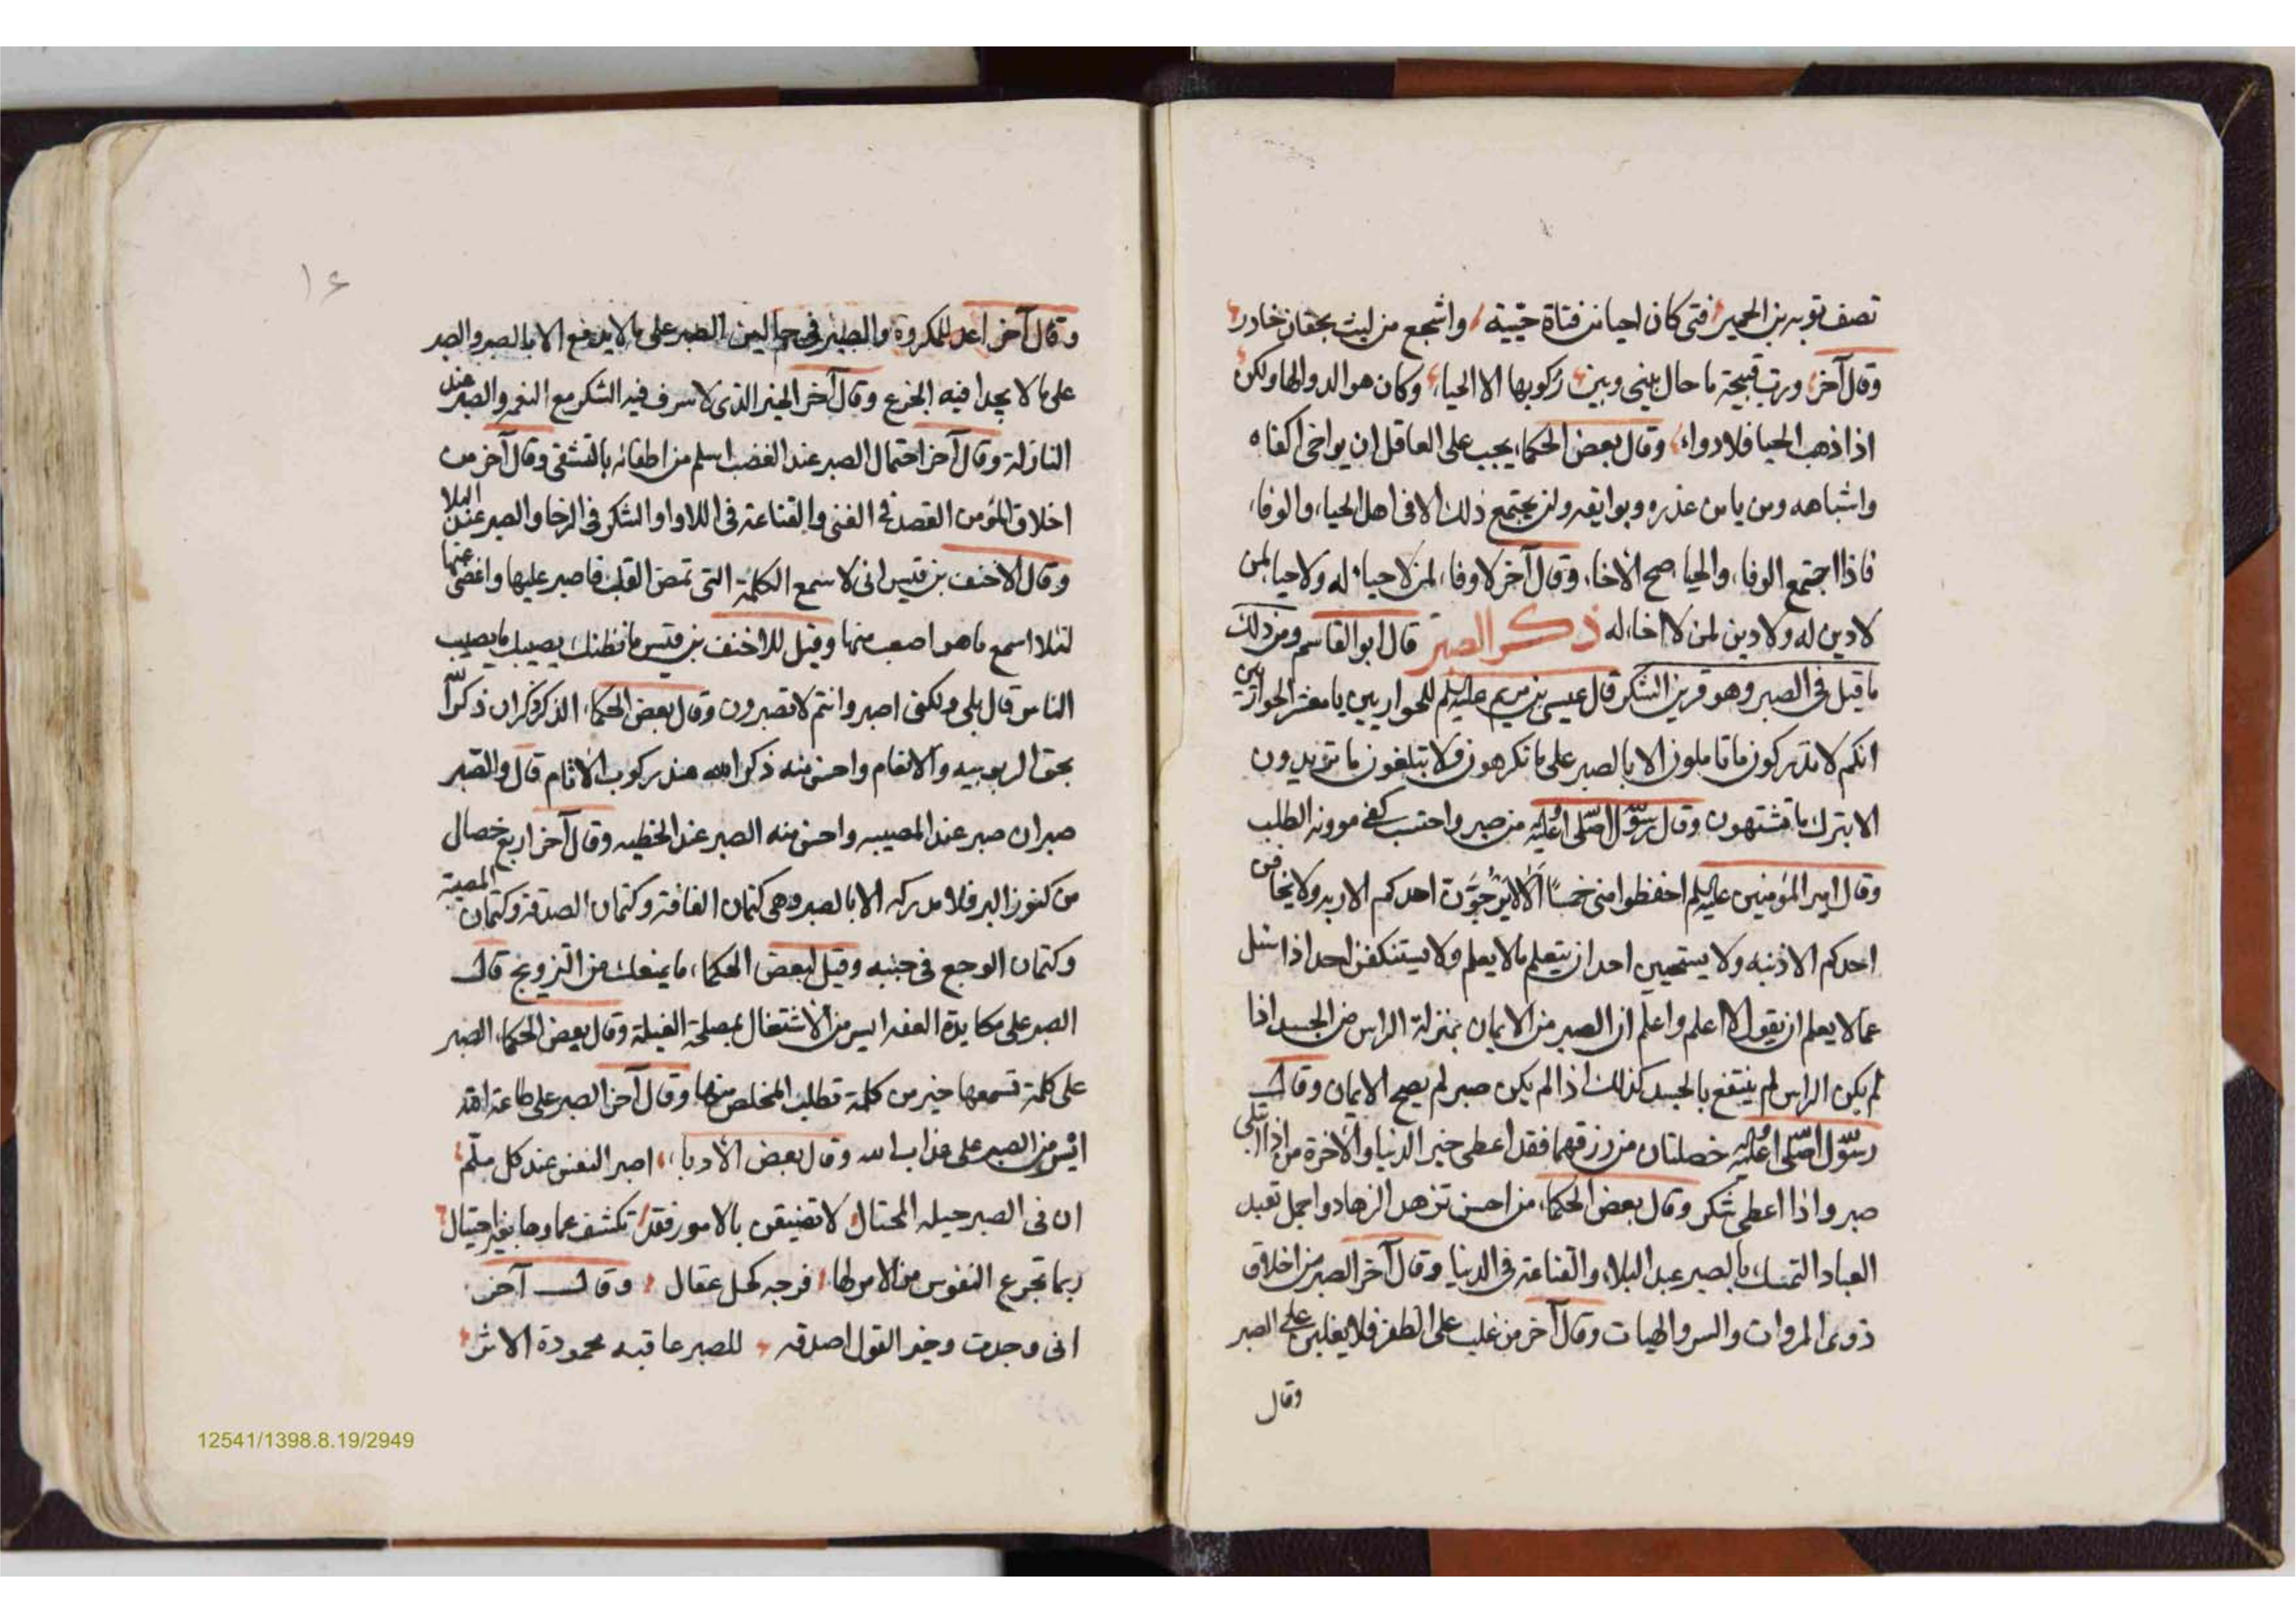 تصف توبة بن الحمير فتى كان احيا من فتاة حيّية واشجع من ليث بخفان خادر
وقال آخر ورب قبيحة ما حال بيني وبين ركوبها الا الحياء وكان هو الدوا لها ولكن
اذا ذهب الحيا فلا دواء وقال بعض الحكماء يجب على العاقل ان يواخى اكفاه
واشباهه ومن يامن غدره وبوايقه ولن يجتمع ذلك الا فى اهل الحياء والوفاء
فاذا اجتمع الوفاء والحيا صح الاخاء وقال آخر لا وفاء لمن لا حياء له ولا حيا لمن
لا دين له ولا دين لمن لا اخاء له ذكر الصبر قال ابو القاسم ومن ذلك
ما قيل فى الصبر وهو قرين الشكر قال عيسى بن مريم عليه السلم للحواريين يا معشر الحواريين
انكم لا تدركون ما تاملون الا بالصبر على ما تكرهون ولا تبلغون ما تريدون
الا بترك ما تشتهون وقال رسول الله صلى الله عليه من صبر واحتسب كفى موونه الطلب
وقال امير المؤمنين عليه السلم احفظوا منى خمسا الا لا يرجوَنّ احدكم الا ربه ولا يخافن
احدكم الا ذنبه ولا يستحيين احد ان يتعلم ما لا يعلم ولا يستنكفن احد اذا سئل
عما لا يعلم ان يقول لا اعلم واعلم ان الصبر من الايمان بمنزلة الراس من الجسد اذا
لم يكن الراس لم ينتفع بالجسد كذلك اذا لم يكن صبر لم يصح الايمان وقال
رسول الله صلى الله عليه خصلتان من رزقهما فقد اعطى خير الدنيا والآخرة من اذا ابتلى
صبر واذا اعطى شكر وقال بعض الحكماء من احسن تزهد الزهاد واجمل تعبد
العباد التمسك بالصبر عند البلاء والقناعة فى الدنيا وقال آخر الصبر من اخلاق
ذوى المروات والسر والهيات وقال آخر من غلب على الظفر فلا يغلبن على الصبر
وقال
١٤
وقال آخر اعد للمكروه والصبر على ما لا يدفع الا بالصبر والصبر
على ما لا يجدا فيه الجزع وقال آخر الخير الذى لا سرف فيه الشكر مع النعم والصبر عند
النازلة وقال آخر احتمال الصبر عند الغضب اسلم من اطفائه بالتشفى وقال آخر من
اخلاق المؤمن القصد فى الغنى والقناعة فى اللاوا والشكر فى الرخا والصبر عند البلا
وقال الاحنف بن قيس انى لاسمع الكلمة التى تمض القلب فاصبر عليها واغضى عنها
لئلا اسمع ما هو اصعب منها وقيل للاحنف بن قيس ما نظنك يصيبك ما يصيب
الناس قال بلى ولكنى اصبر وانتم لا تصبرون وقال بعض الحكماء الذكر ذكران ذكر الله
بحق الربوبيه والانعام واحسن منه ذكر الله عند ركوب الاثام قال والصبر
صبران صبر عند المصيبه واحسن منه الصبر عند الخطيه وقال آخر اربع خصال
من كنوز البر فلا مدركه الا بالصبر وهى كتمان الفاقة وكتمان الصدقة وكتمان المصيبة
وكتمان الوجع فى جنبه وقيل لبعض الحكماء ما يمنعك من التزويج قال
الصبر على مكايدة العفه ايسر من الاشتغال بمصلحة العيلة وقال بعض الحكماء الصبر
على كلمة تسمعها خير من كلمة تطلب المخلص منها وقال آخر الصبر على طاعة الله
ايسر من الصبر على عذاب الله وقال بعض الادباء اصبر النفس عند كل ملم
ان فى الصبر حيله المحتال لا تضيقن بالامور فقد تكشف غماوها بغير احتيال
ربما تجزع النفوس من الامر لها فرجه كحل عقال وقال آخر
انى وجدت وخير القول اصدقه للصبر عاقبه محمودة الاثر
12541/1398.8.19/2949